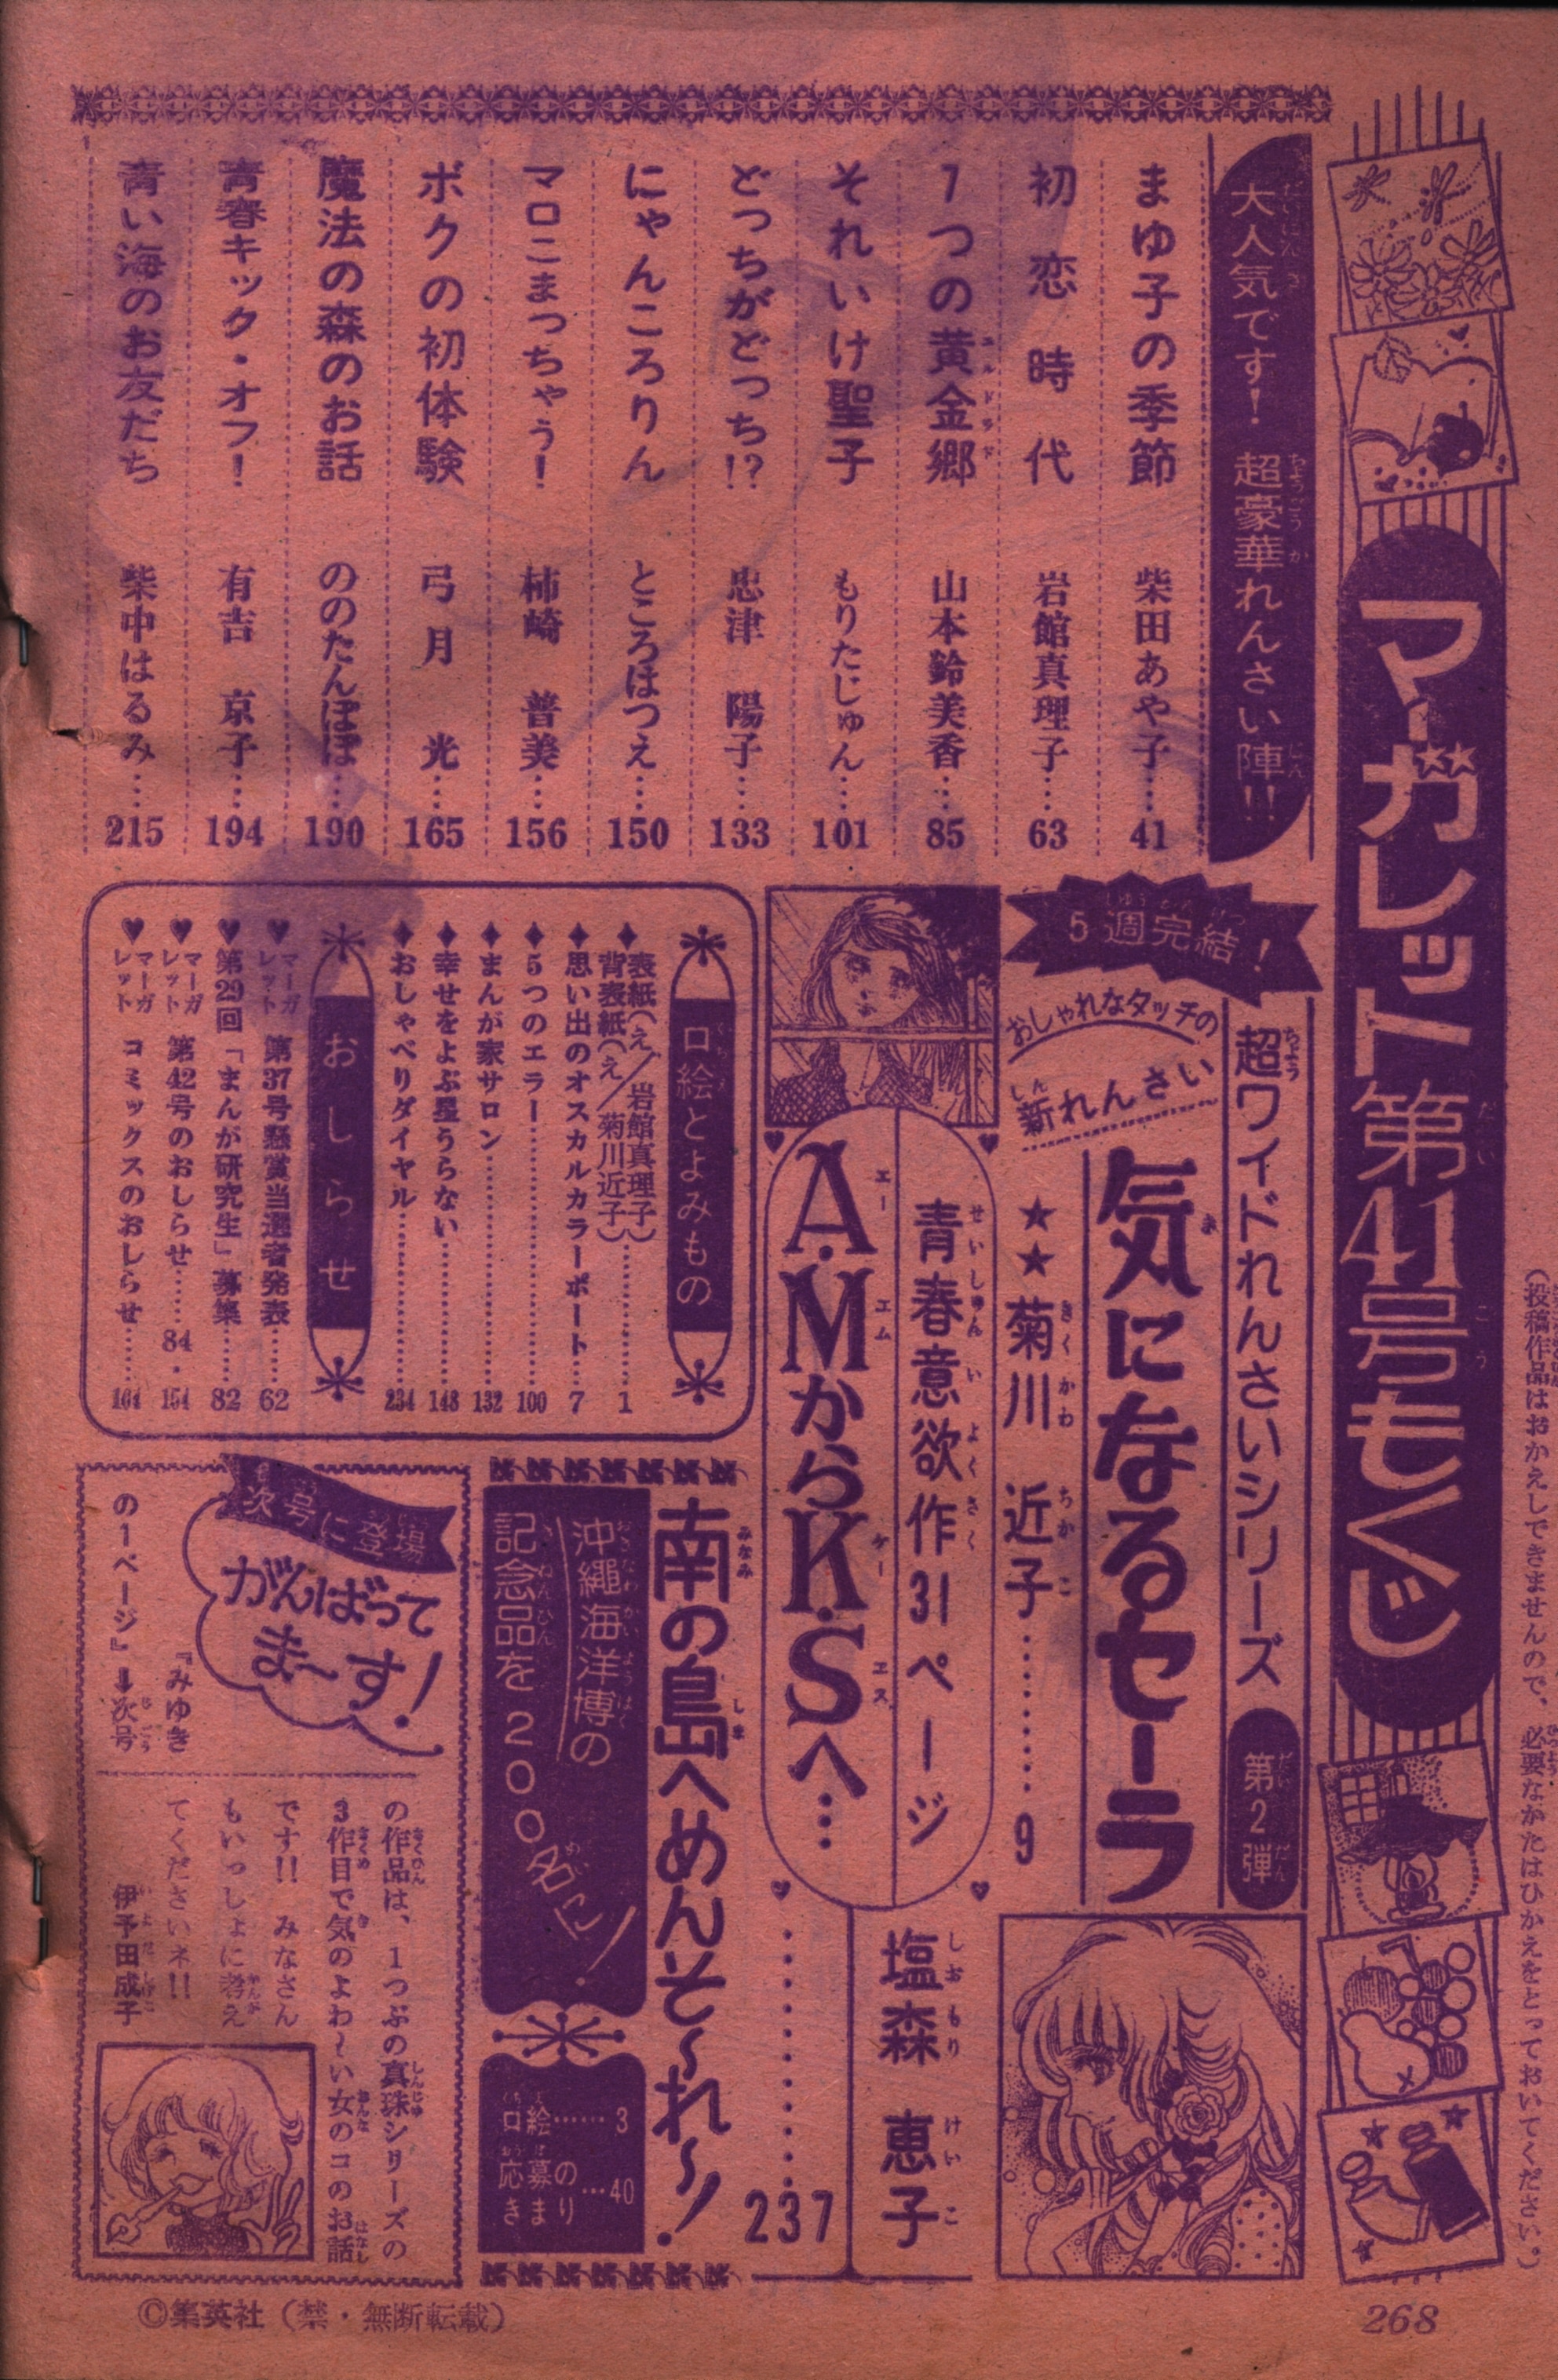 マーガレット第41号もくじ
(投稿作品はおかえしできませんので、必要なかたはひかえをとっておいてください。)
大人気です! 超豪華れんさい陣!!
まゆ子の季節 柴田あや子…41
初恋時代 岩館真理子…63
7つの黄金郷 山本鈴美香…85
それいけ聖子 もりたじゅん…101
どっちがどっち!? 忠津陽子…133
にゃんころりん ところはつえ…150
マロこまっちゃう! 柿崎普美…156
ボクの初体験 弓月光…165
魔法の森のお話 ののたんぽぽ…190
青春キック・オフ! 有吉京子…194
青い海のお友だち 柴中はるみ…215
超ワイドれんさいシリーズ 第2弾
5週完結!
おしゃれなタッチの
新れんさい
気になるセーラ
★★菊川近子………9
青春意欲作31ページ
A・MからK・Sへ…
塩森恵子
………237
口絵とよみもの
◆表紙(え/岩館真理子)
背表紙(え/菊川近子)………1
◆思い出のオスカルカラーポート…7
◆5つのエラー………100
◆まんが家サロン………132
◆幸せをよぶ星うらない………148
◆おしゃべりダイヤル………234
おしらせ
♥マーガレット 第37号懸賞当選者発表……62
♥第29回「まんが研究生」募集……82
♥マーガレット 第42号のおしらせ……84・154
♥マーガレット コミックスのおしらせ……164
南の島へめんそ〜れ〜!
沖縄海洋博の
記念品を200名に!
口絵……3
応募のきまり…40
次号に登場
がんばって
ま〜す!
『みゆき
の1ページ』➡次号
の作品は、1つぶの真珠シリーズの
3作目で気のよわ〜い女のコのお話
です!! みなさん
もいっしょに考え
てくださいネ!!
伊予田成子
©集英社(禁・無断転載)
268